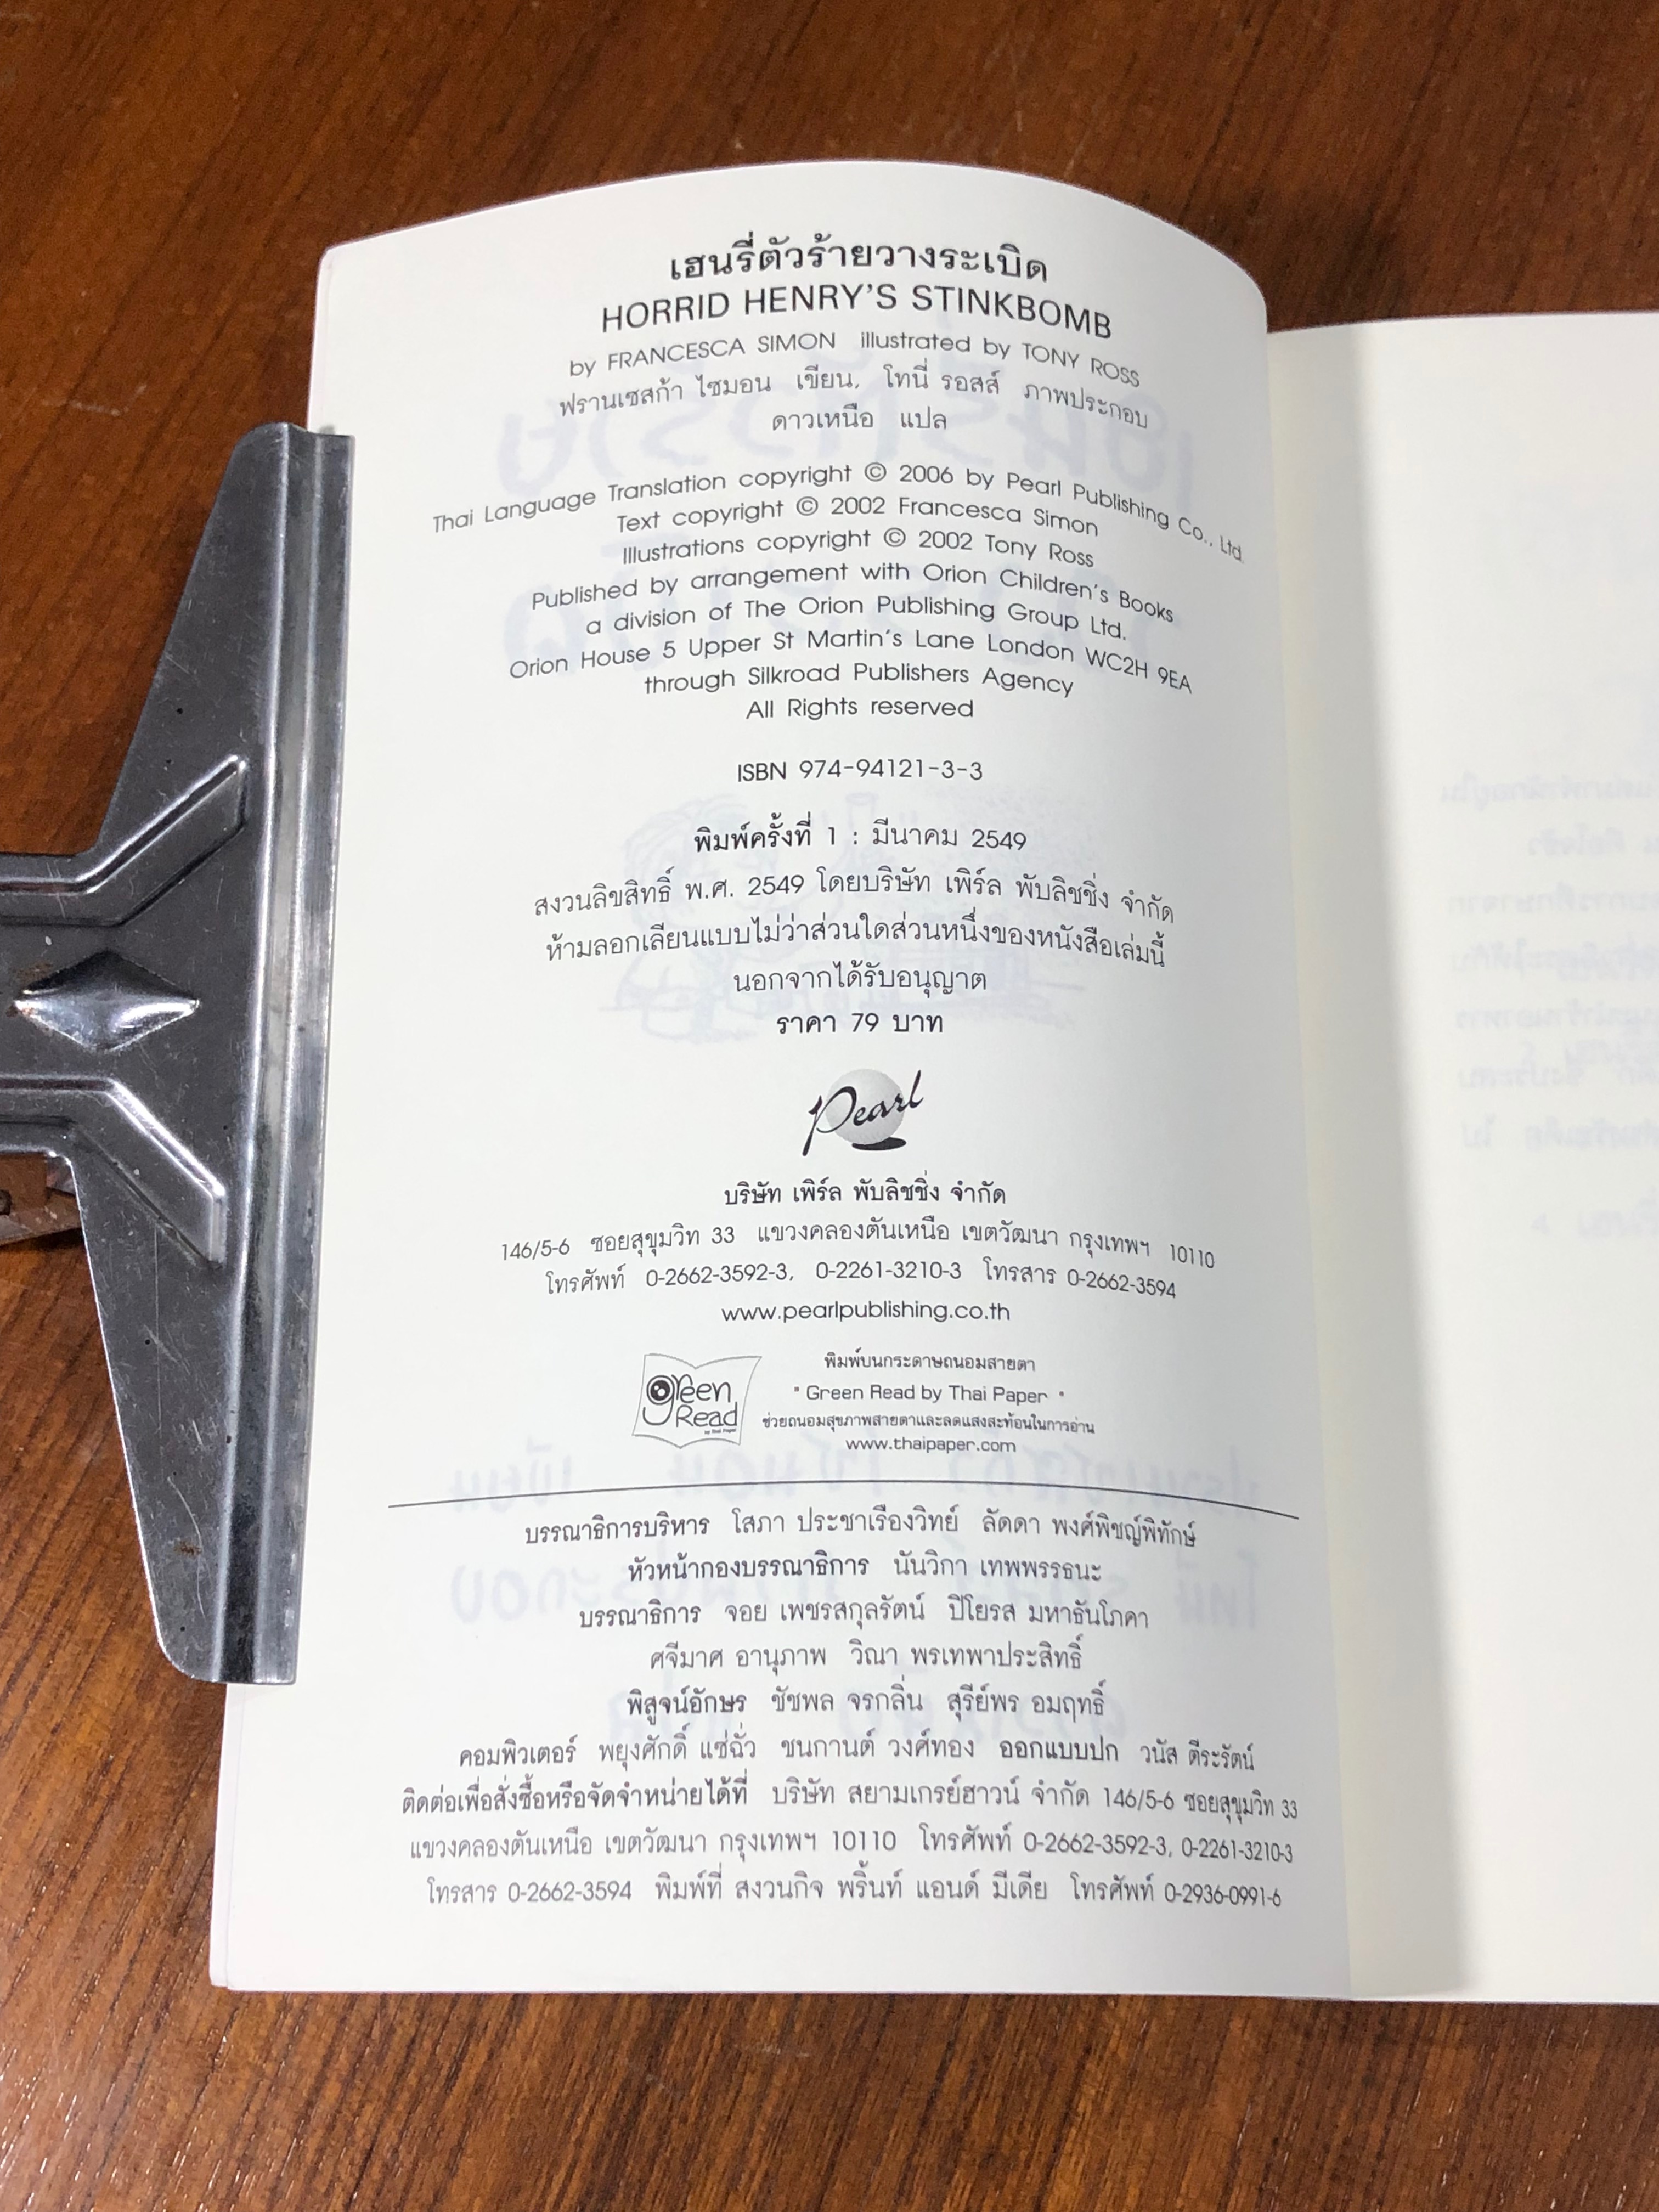 เฮนรี่ตัวร้ายวางระเบิด
HORRID HENRY'S STINKBOMB
by FRANCESCA SIMON illustrated by TONY ROSS
ฟรานเซสก้า ไซมอน เขียน, โทนี่ รอสส์ ภาพประกอบ
ดาวเหนือ แปล
Thai Language Translation copyright © 2006 by Pearl Publishing Co., Ltd.
Text copyright © 2002 Francesca Simon
Illustrations copyright © 2002 Tony Ross
Published by arrangement with Orion Children's Books
a division of The Orion Publishing Group Ltd.
Orion House 5 Upper St Martin's Lane London WC2H 9EA
through Silkroad Publishers Agency
All Rights reserved
ISBN 974-94121-3-3
พิมพ์ครั้งที่ 1 : มีนาคม 2549
สงวนลิขสิทธิ์ พ.ศ. 2549 โดยบริษัท เพิร์ล พับลิชชิ่ง จำกัด
ห้ามลอกเลียนแบบไม่ว่าส่วนใดส่วนหนึ่งของหนังสือเล่มนี้
นอกจากได้รับอนุญาต
ราคา 79 บาท
Pearl
บริษัท เพิร์ล พับลิชชิ่ง จำกัด
146/5-6 ซอยสุขุมวิท 33 แขวงคลองตันเหนือ เขตวัฒนา กรุงเทพฯ 10110
โทรศัพท์ 0-2662-3592-3, 0-2261-3210-3 โทรสาร 0-2662-3594
www.pearlpublishing.co.th
green Read by Thai Paper
พิมพ์บนกระดาษถนอมสายตา
" Green Read by Thai Paper "
ช่วยถนอมสุขภาพสายตาและลดแสงสะท้อนในการอ่าน
www.thaipaper.com
บรรณาธิการบริหาร โสภา ประชาเรืองวิทย์ ลัดดา พงศ์พิชญ์พิทักษ์
หัวหน้ากองบรรณาธิการ นันวิกา เทพพรรธนะ
บรรณาธิการ จอย เพชรสกุลรัตน์ ปิโยรส มหาธันโภคา
ศจีมาศ อานุภาพ วิณา พรเทพาประสิทธิ์
พิสูจน์อักษร ชัชพล จรกลิ่น สุรีย์พร อมฤทธิ์
คอมพิวเตอร์ พยุงศักดิ์ แซ่ฉั่ว ชนกานต์ วงศ์ทอง ออกแบบปก วนัส ตีระรัตน์
ติดต่อเพื่อสั่งซื้อหรือจัดจำหน่ายได้ที่ บริษัท สยามเกรย์ฮาวน์ จำกัด 146/5-6 ซอยสุขุมวิท 33
แขวงคลองตันเหนือ เขตวัฒนา กรุงเทพฯ 10110 โทรศัพท์ 0-2662-3592-3, 0-2261-3210-3
โทรสาร 0-2662-3594 พิมพ์ที่ สงวนกิจ พริ้นท์ แอนด์ มีเดีย โทรศัพท์ 0-2936-0991-6